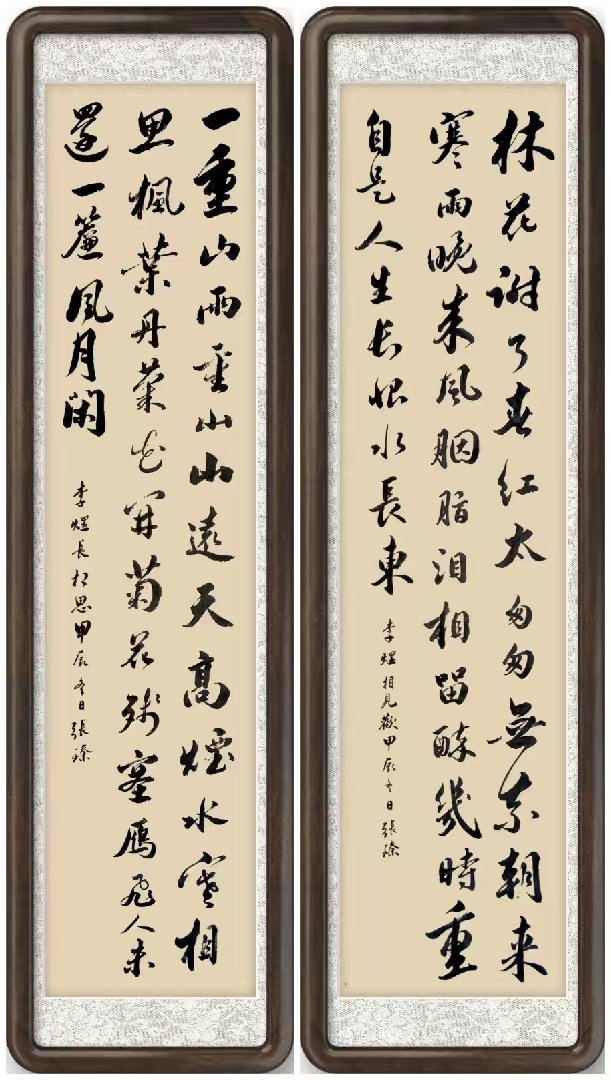 林花謝了春红太匆匆無奈朝来
寒雨晚来风胭脂泪相留醉幾時重
自是人生长恨水長東
李煜相見歡甲辰冬日張
一重山兩重山山遠天高煙水寒相
思楓葉丹菊花開菊花残塞鴈飛人未
還一簾風月閑
李煜長相思甲辰冬日張